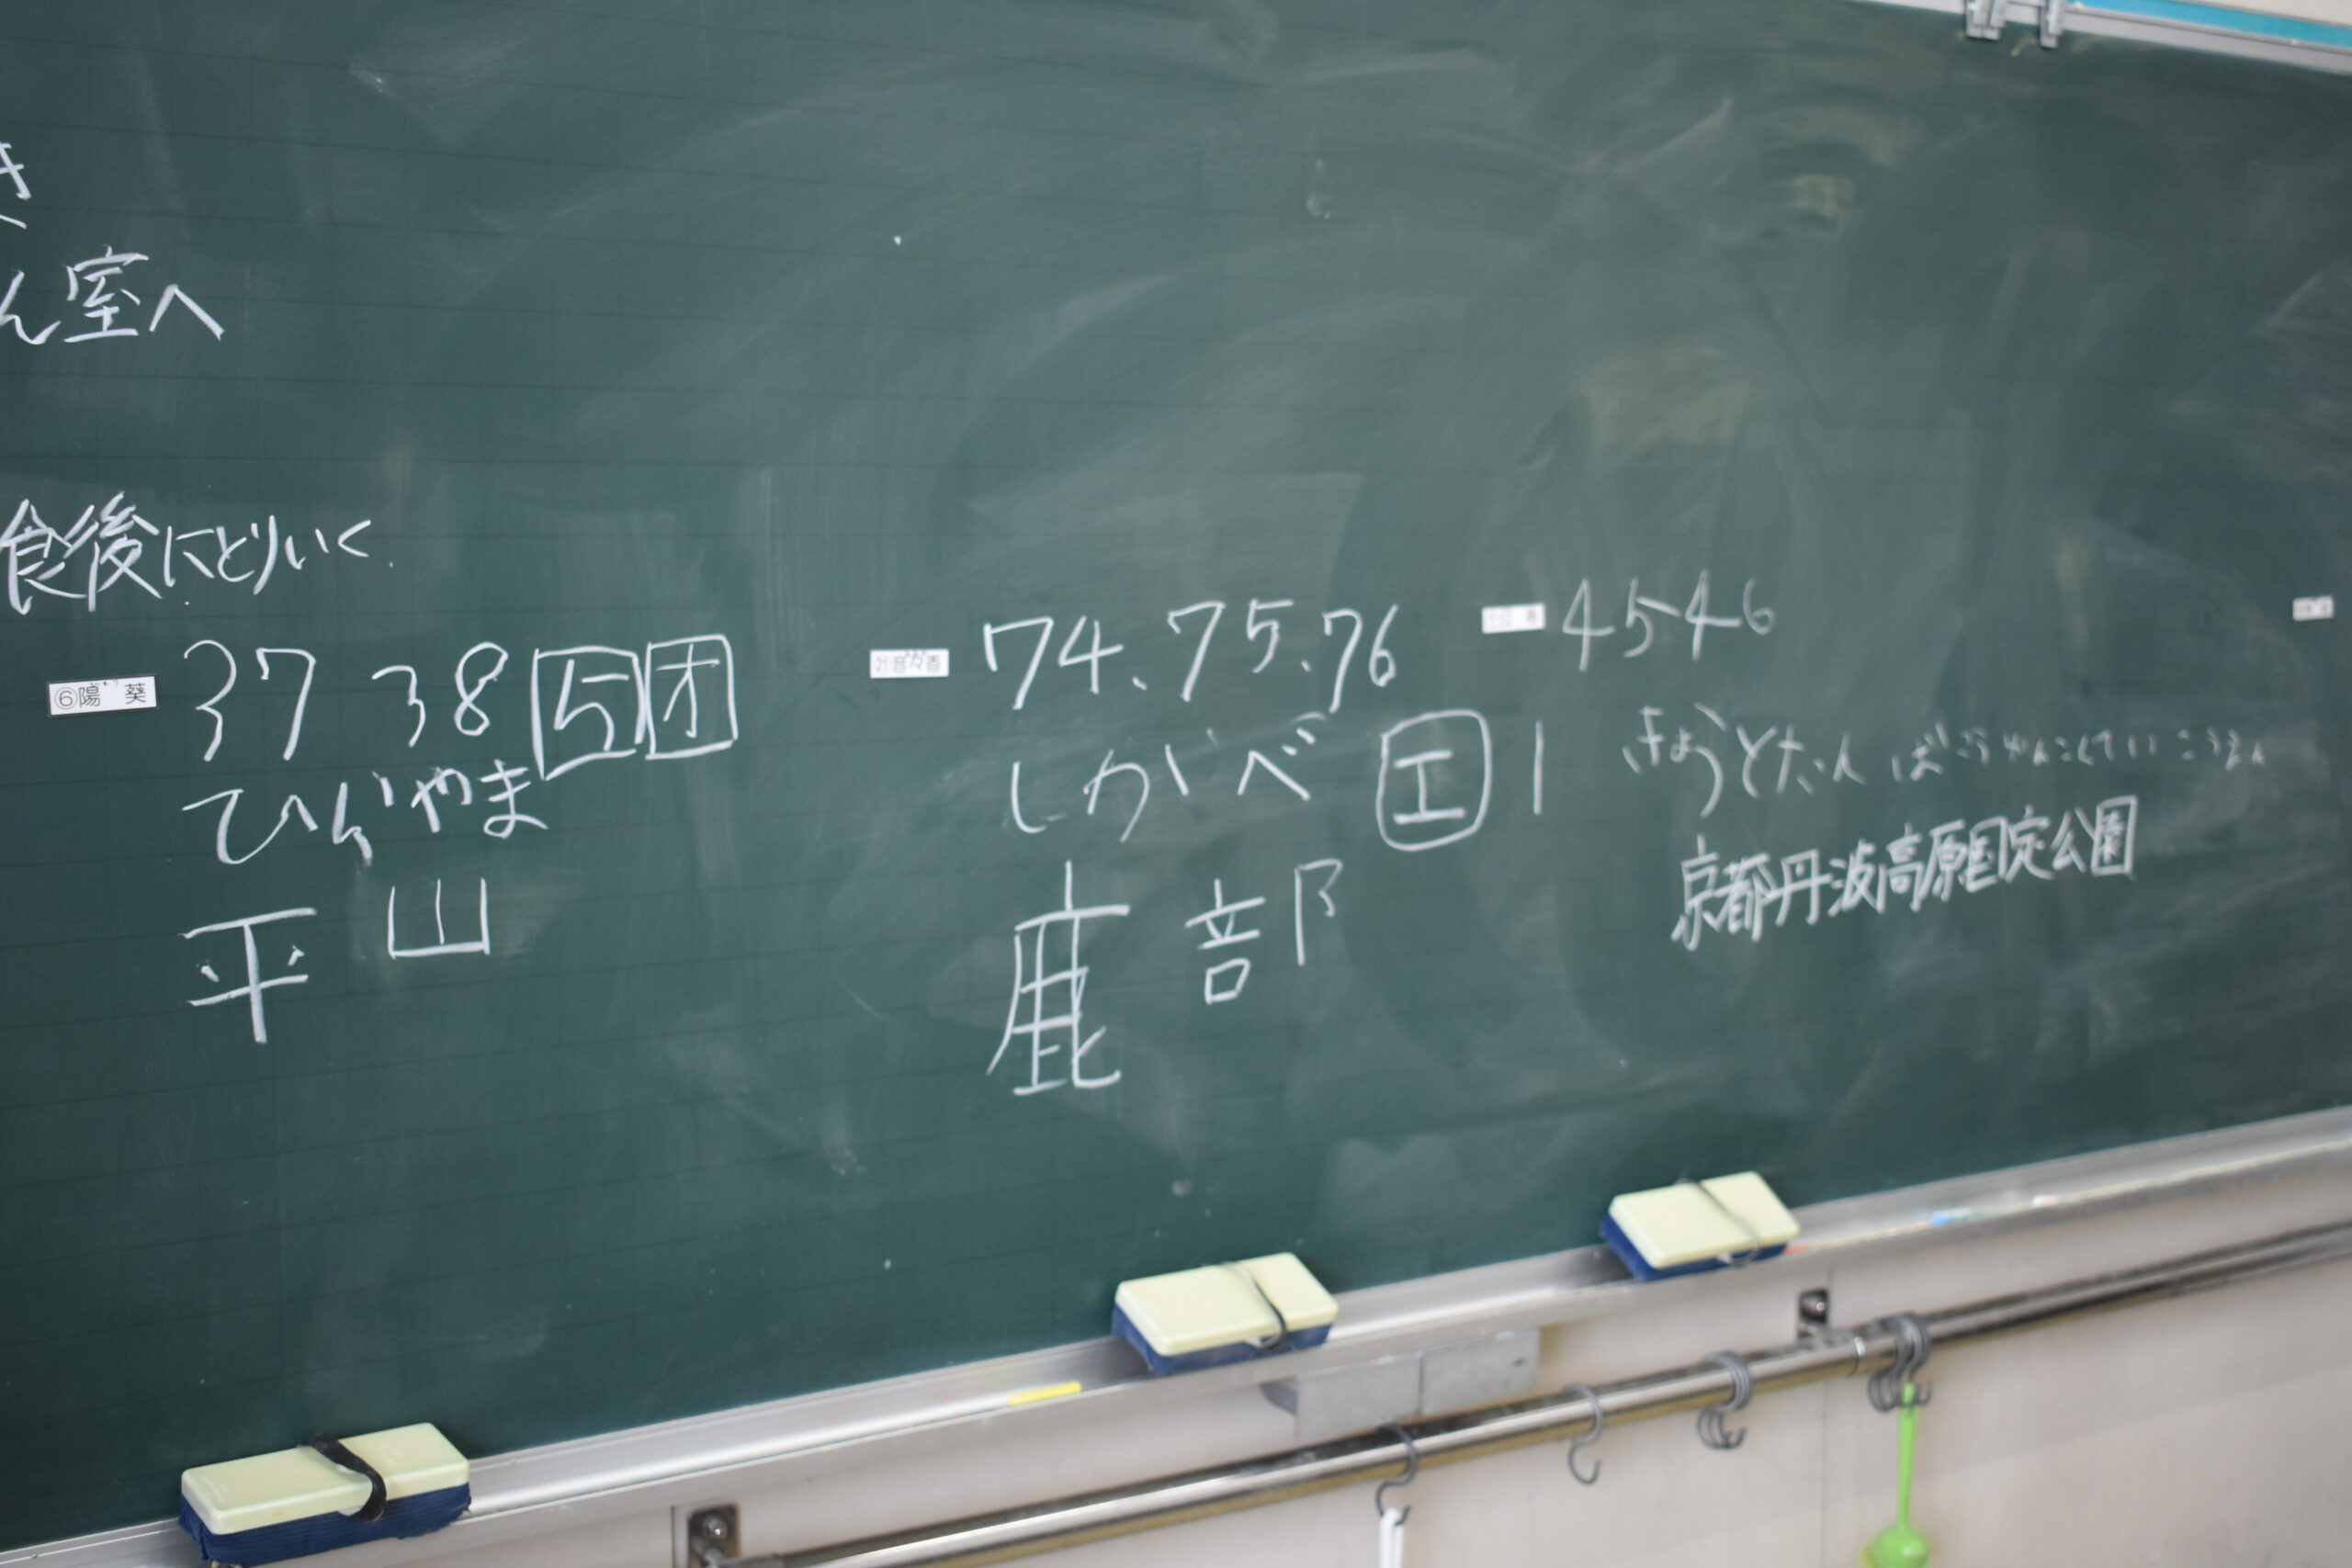 き
ん室へ
食後にとりいく
⑥陽葵 37 38 ５ オ
ひらやま
平山
㉑音々香 74、75、76
しかべ エ 1
鹿部
45 46
きょうとたんばこうげんこくていこうえん
京都丹波高原国定公園